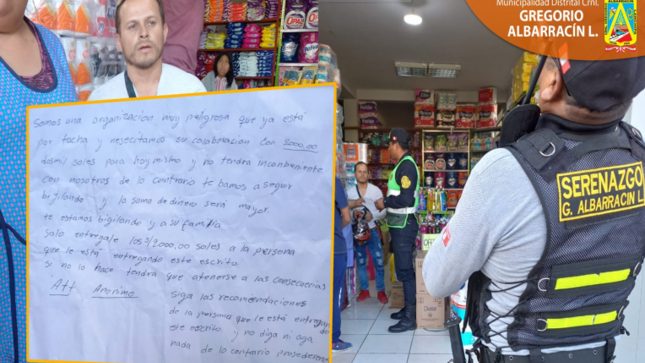 Municipalidad Distrital Crnl.
GREGORIO
ALBARRACÍN L.
Somos una organizacion muy peligrosa que ya está
por tacna y nesecitamos su colaboracion con 2000,00
dosmil soles para hoy mismo y no tendrá inconbeniente
con nosotros de lo contrario te bamos a seguir
bigilando y la suma de dinero será mayor.
te estamos bigilando y a su familia
solo entregale los S/2000,00 soles a la persona
que le está entregando este escrito
si no lo hace tendrá que atenerse a las consecuencias
Att Anonimo
siga las recomendaciones
de la persona que le está entregando
este escrito y no diga ni aga
nada de lo contrario
SERENAZGO
G. ALBARRACIN L.